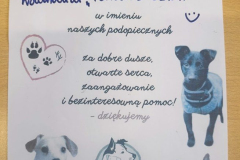 w imieniu
naszych podopiecznych
za dobre dusze,
otwarte serca,
zaangażowanie
i bezinteresowną pomoc!
- dziękujemy